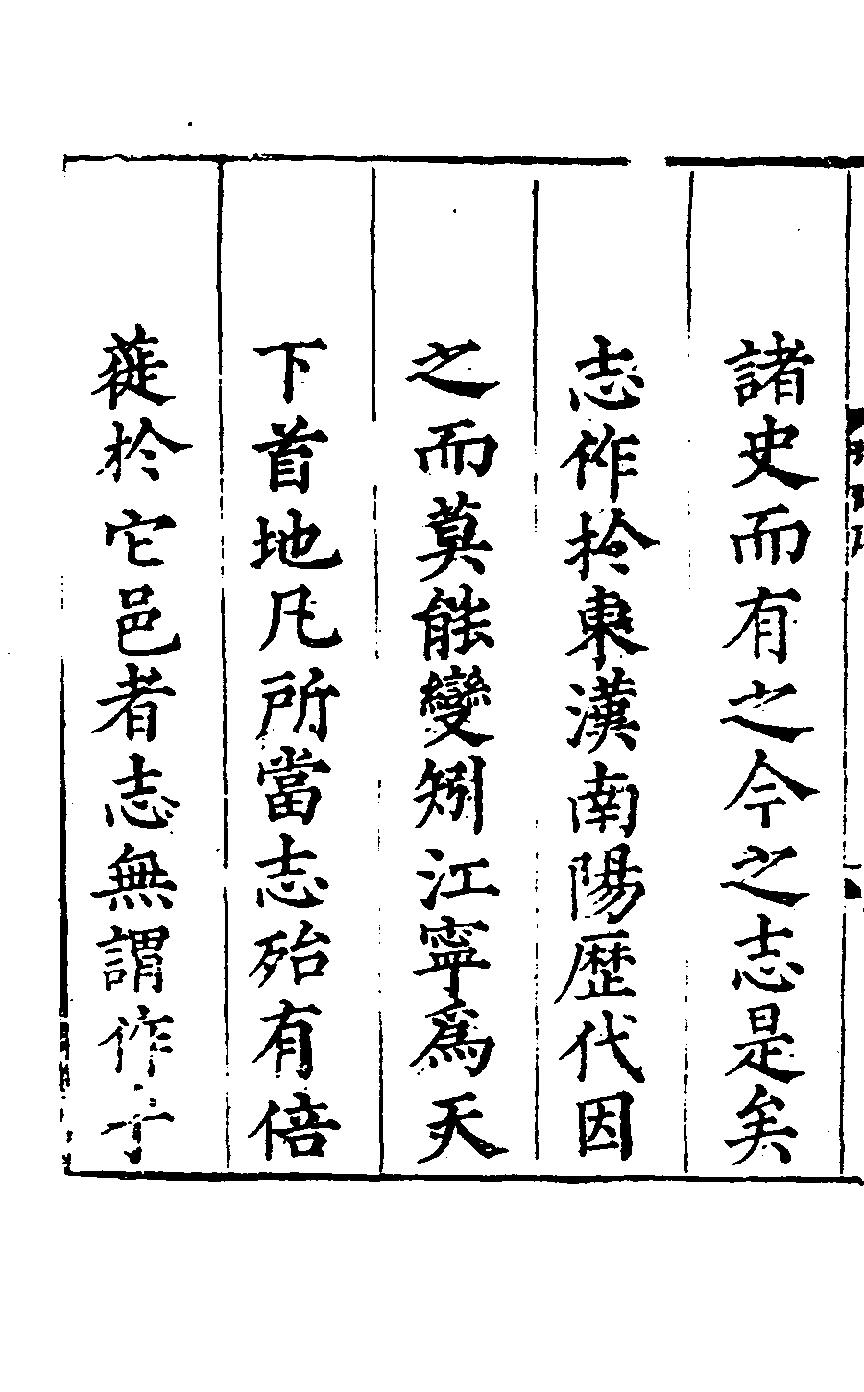 諸史而有之今之志是矣
志作於東漢南陽歷代因
之而莫能變矧江寧為天
下首地凡所當志殆有倍
蓰於它邑者志無謂作于